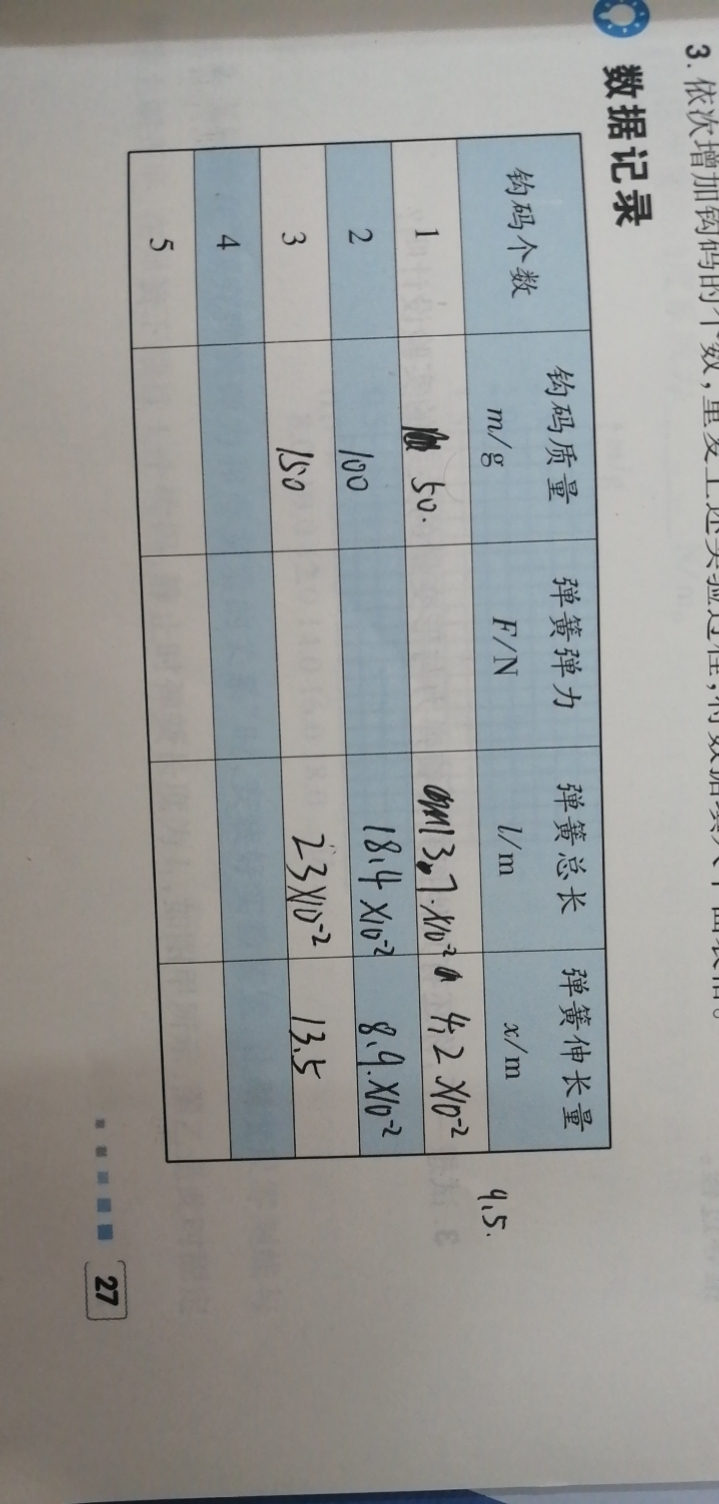 3. 依次增加钩码的个数,重复上述实验过程,将数据填入下面表格。
数据记录
钩码个数 钩码质量 m/g 弹簧弹力 F/N 弹簧总长 l/m 弹簧伸长量 x/m
1 50. 13.7×10⁻² 4.2×10⁻²
2 100 18.4×10⁻² 8.9.×10⁻²
3 150 23×10⁻² 13.5
4
5
9.5.
27